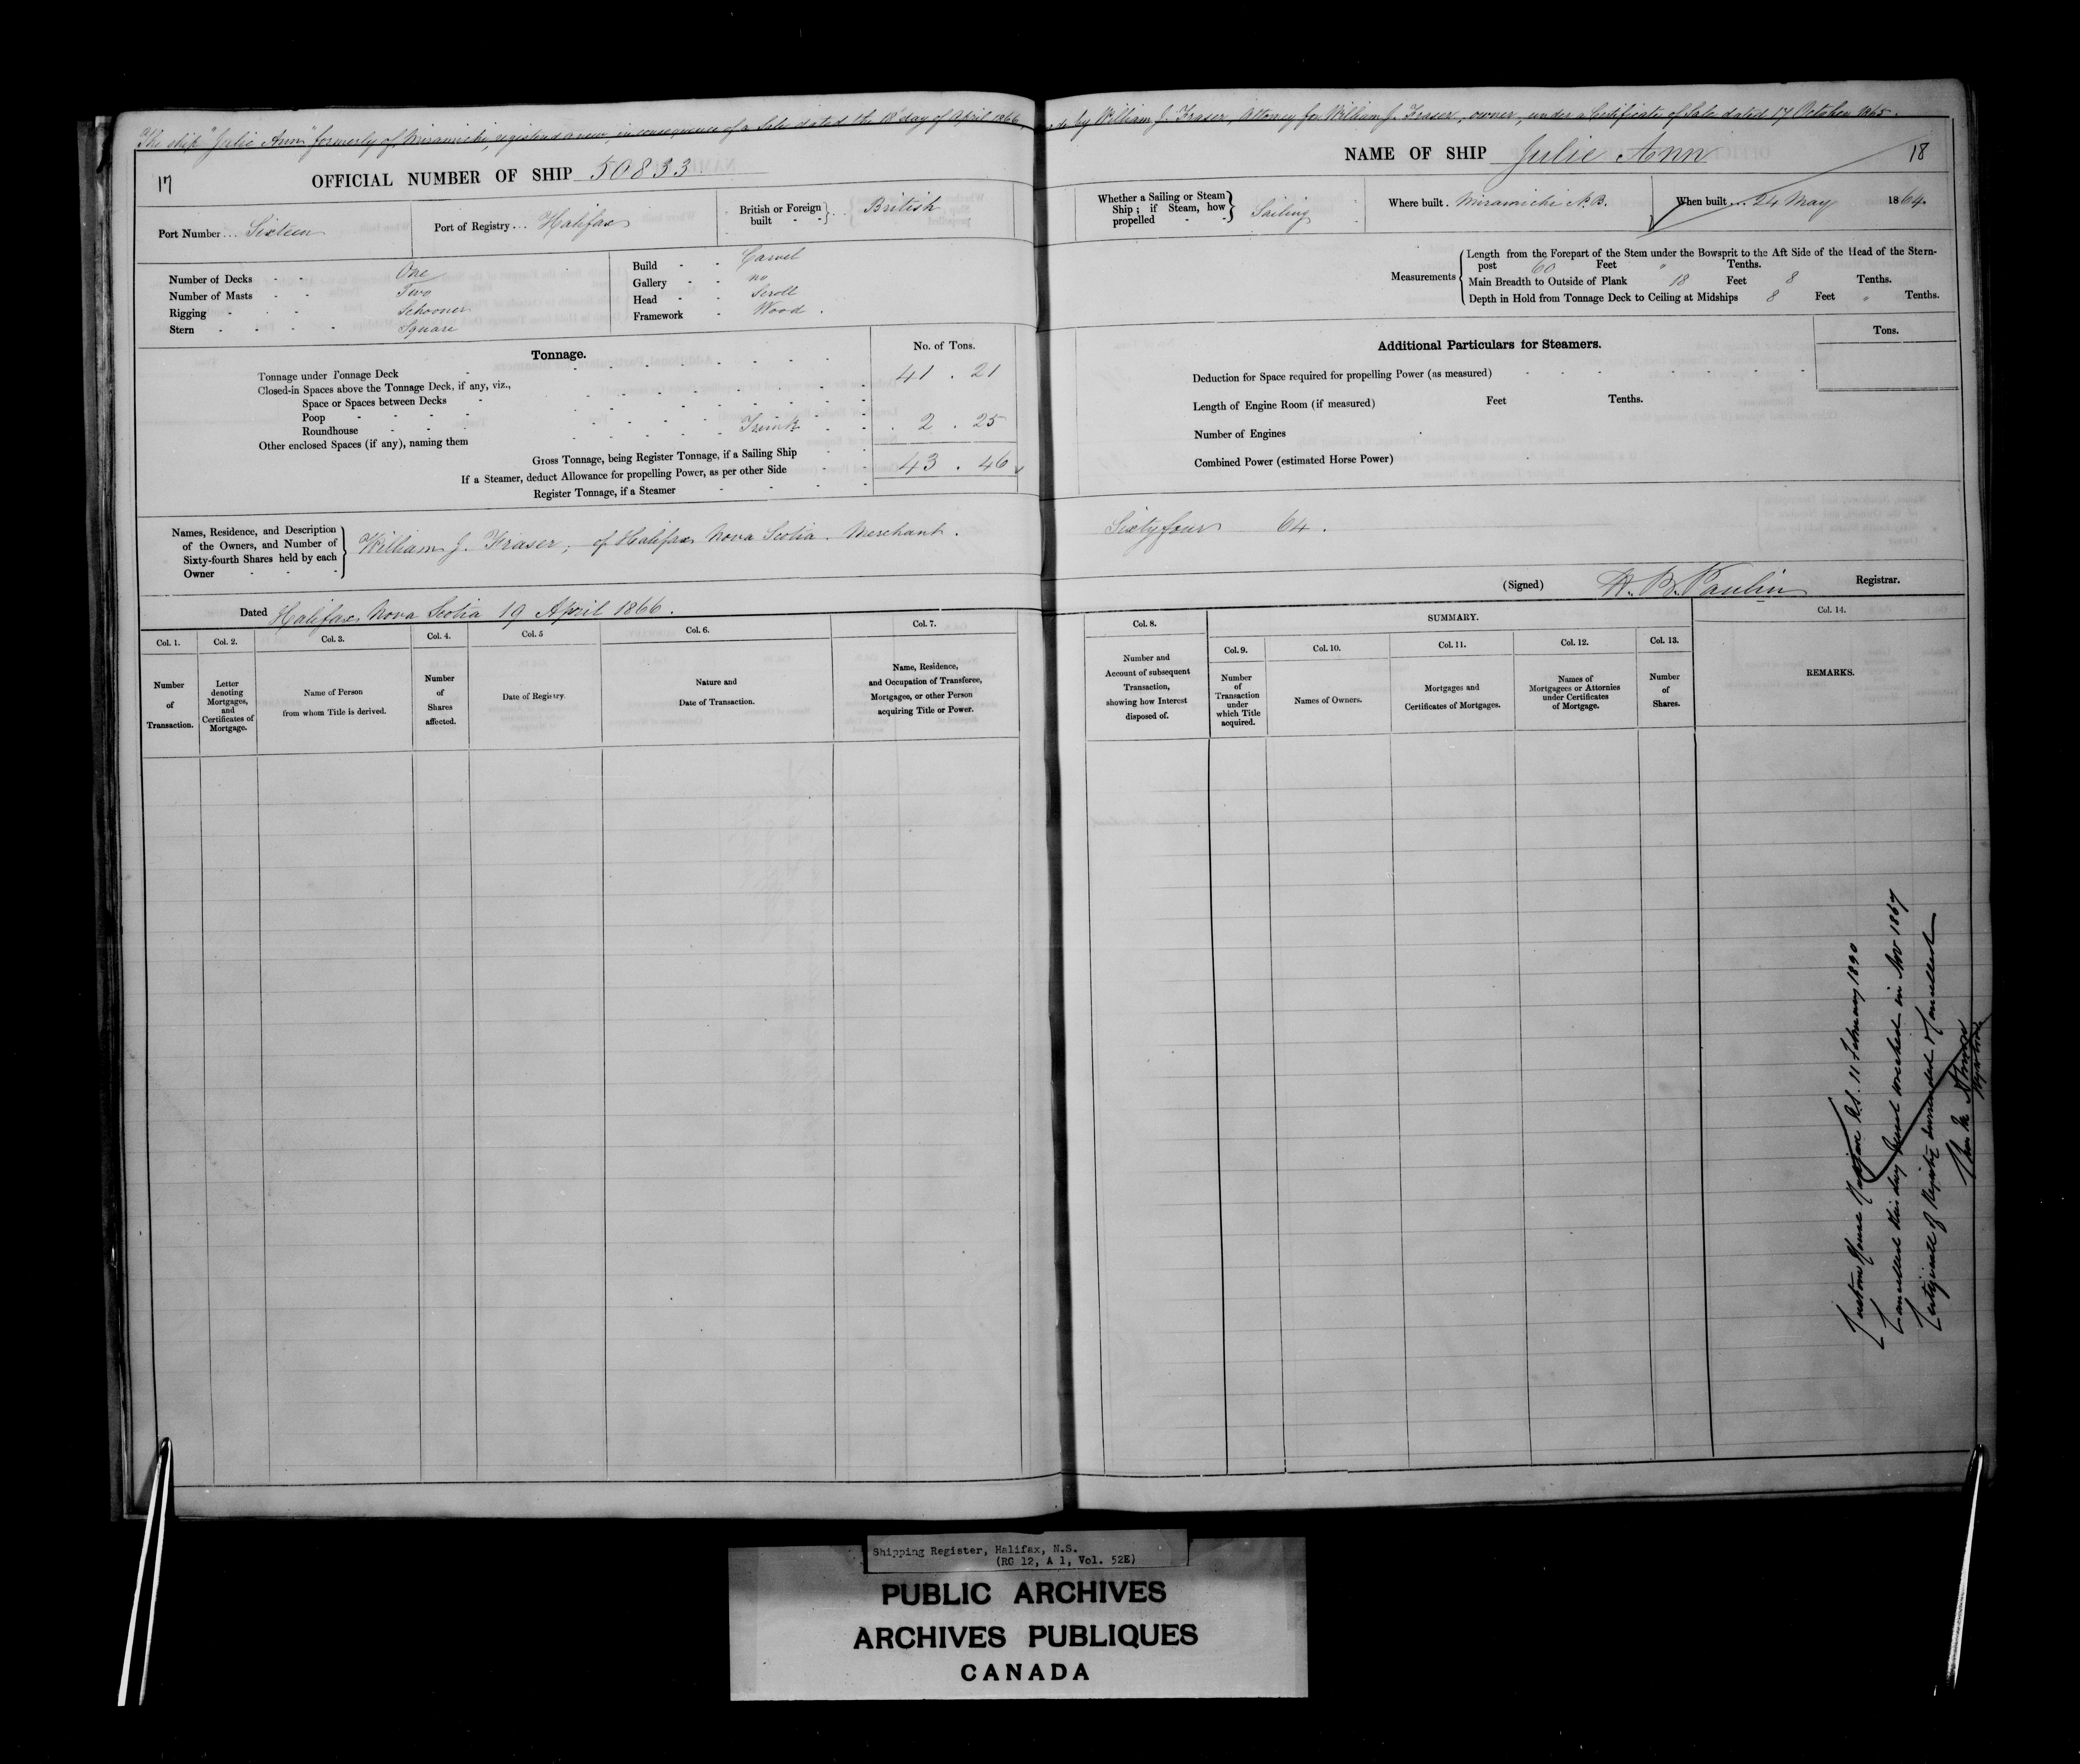 The ship "Julie Ann" formerly of Miramichi, registered anew, in consequence of a Sale dated the 18 day of April 1866, made by William J. Fraser, Attorney for William J. Fraser, owner, under a Certificate of Sale dated 17 October 1865.
17
OFFICIAL NUMBER OF SHIP 50833
NAME OF SHIP Julie Ann
18
Port Number ... Sixteen
Port of Registry ... Halifax
British or Foreign built - - } .. British
Whether a Sailing or Steam Ship ; if Steam, how propelled - - } Sailing
Where built . Miramichi N.B.
When built ... 24 May 1864.
Number of Decks - - One
Number of Masts - - Two
Rigging - - - Schooner
Stern - - - - Square
Build - - Carvel
Gallery - - no
Head - - Scroll
Framework - Wood .
Measurements { Length from the Forepart of the Stem under the Bowsprit to the Aft Side of the Head of the Stern-
post 60 Feet " Tenths.
Main Breadth to Outside of Plank 18 Feet 8 Tenths.
Depth in Hold from Tonnage Deck to Ceiling at Midships 8 Feet " Tenths.
Tonnage.
No. of Tons.
Tonnage under Tonnage Deck 41 . 21
Closed-in Spaces above the Tonnage Deck, if any, viz.,
Space or Spaces between Decks
Poop
Roundhouse
Other enclosed Spaces (if any), naming them Trunk 2 . 25
Gross Tonnage, being Register Tonnage, if a Sailing Ship 43 . 46
If a Steamer, deduct Allowance for propelling Power, as per other Side
Register Tonnage, if a Steamer
Additional Particulars for Steamers.
Tons.
Deduction for Space required for propelling Power (as measured)
Length of Engine Room (if measured) Feet Tenths.
Number of Engines
Combined Power (estimated Horse Power)
Names, Residence, and Description
of the Owners, and Number of
Sixty-fourth Shares held by each
Owner - - - } William J. Fraser, of Halifax Nova Scotia. Merchant . Sixtyfour 64 .
(Signed) Registrar.
Dated Halifax Nova Scotia 19 April 1866 .
Col. 1.
Number
of
Transaction.
Col. 2.
Letter
denoting
Mortgages,
and
Certificates of
Mortgage.
Col. 3.
Name of Person
from whom Title is derived.
Col. 4.
Number
of
Shares
affected.
Col. 5
Date of Registry.
Col. 6.
Nature and
Date of Transaction.
Col. 7.
Name, Residence,
and Occupation of Transferee,
Mortgagee, or other Person
acquiring Title or Power.
Col. 8.
Number and
Account of subsequent
Transaction,
showing how Interest
disposed of.
SUMMARY.
Col. 9.
Number
of
Transaction
under
which Title
acquired.
Col. 10.
Names of Owners.
Col. 11.
Mortgages and
Certificates of Mortgages.
Col. 12.
Names of
Mortgagees or Attornies
under Certificates
of Mortgage.
Col. 13.
Number
of
Shares.
Col. 14.
REMARKS.
Custom House Halifax N.S. 11 February 1890
Cancelled this day Vessel wrecked in Nov 1867
Certificate of Registry surrendered & Cancelled
Registrar
Shipping Register, Halifax, N.S.
(RG 12, A 1, Vol. 52E)
PUBLIC ARCHIVES
ARCHIVES PUBLIQUES
CANADA